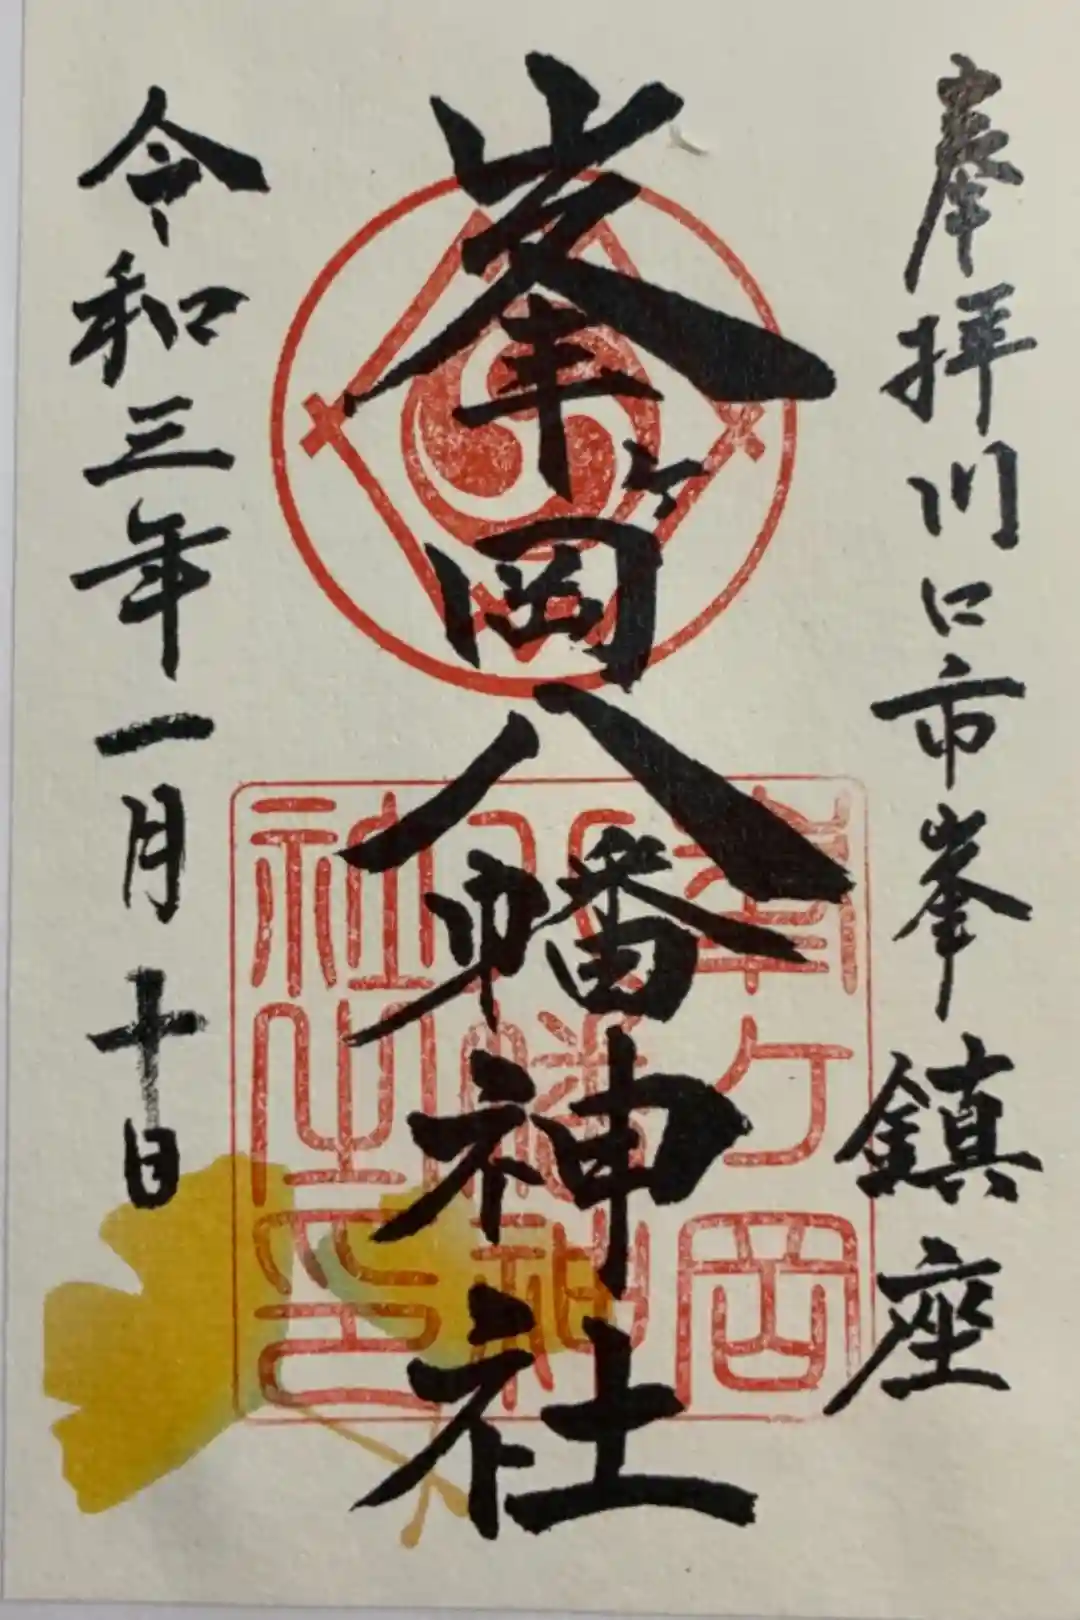 奉拝川口市峯鎮座
峯ヶ岡八幡神社
令和三年一月十日
峯ヶ岡
八幡神
社之印